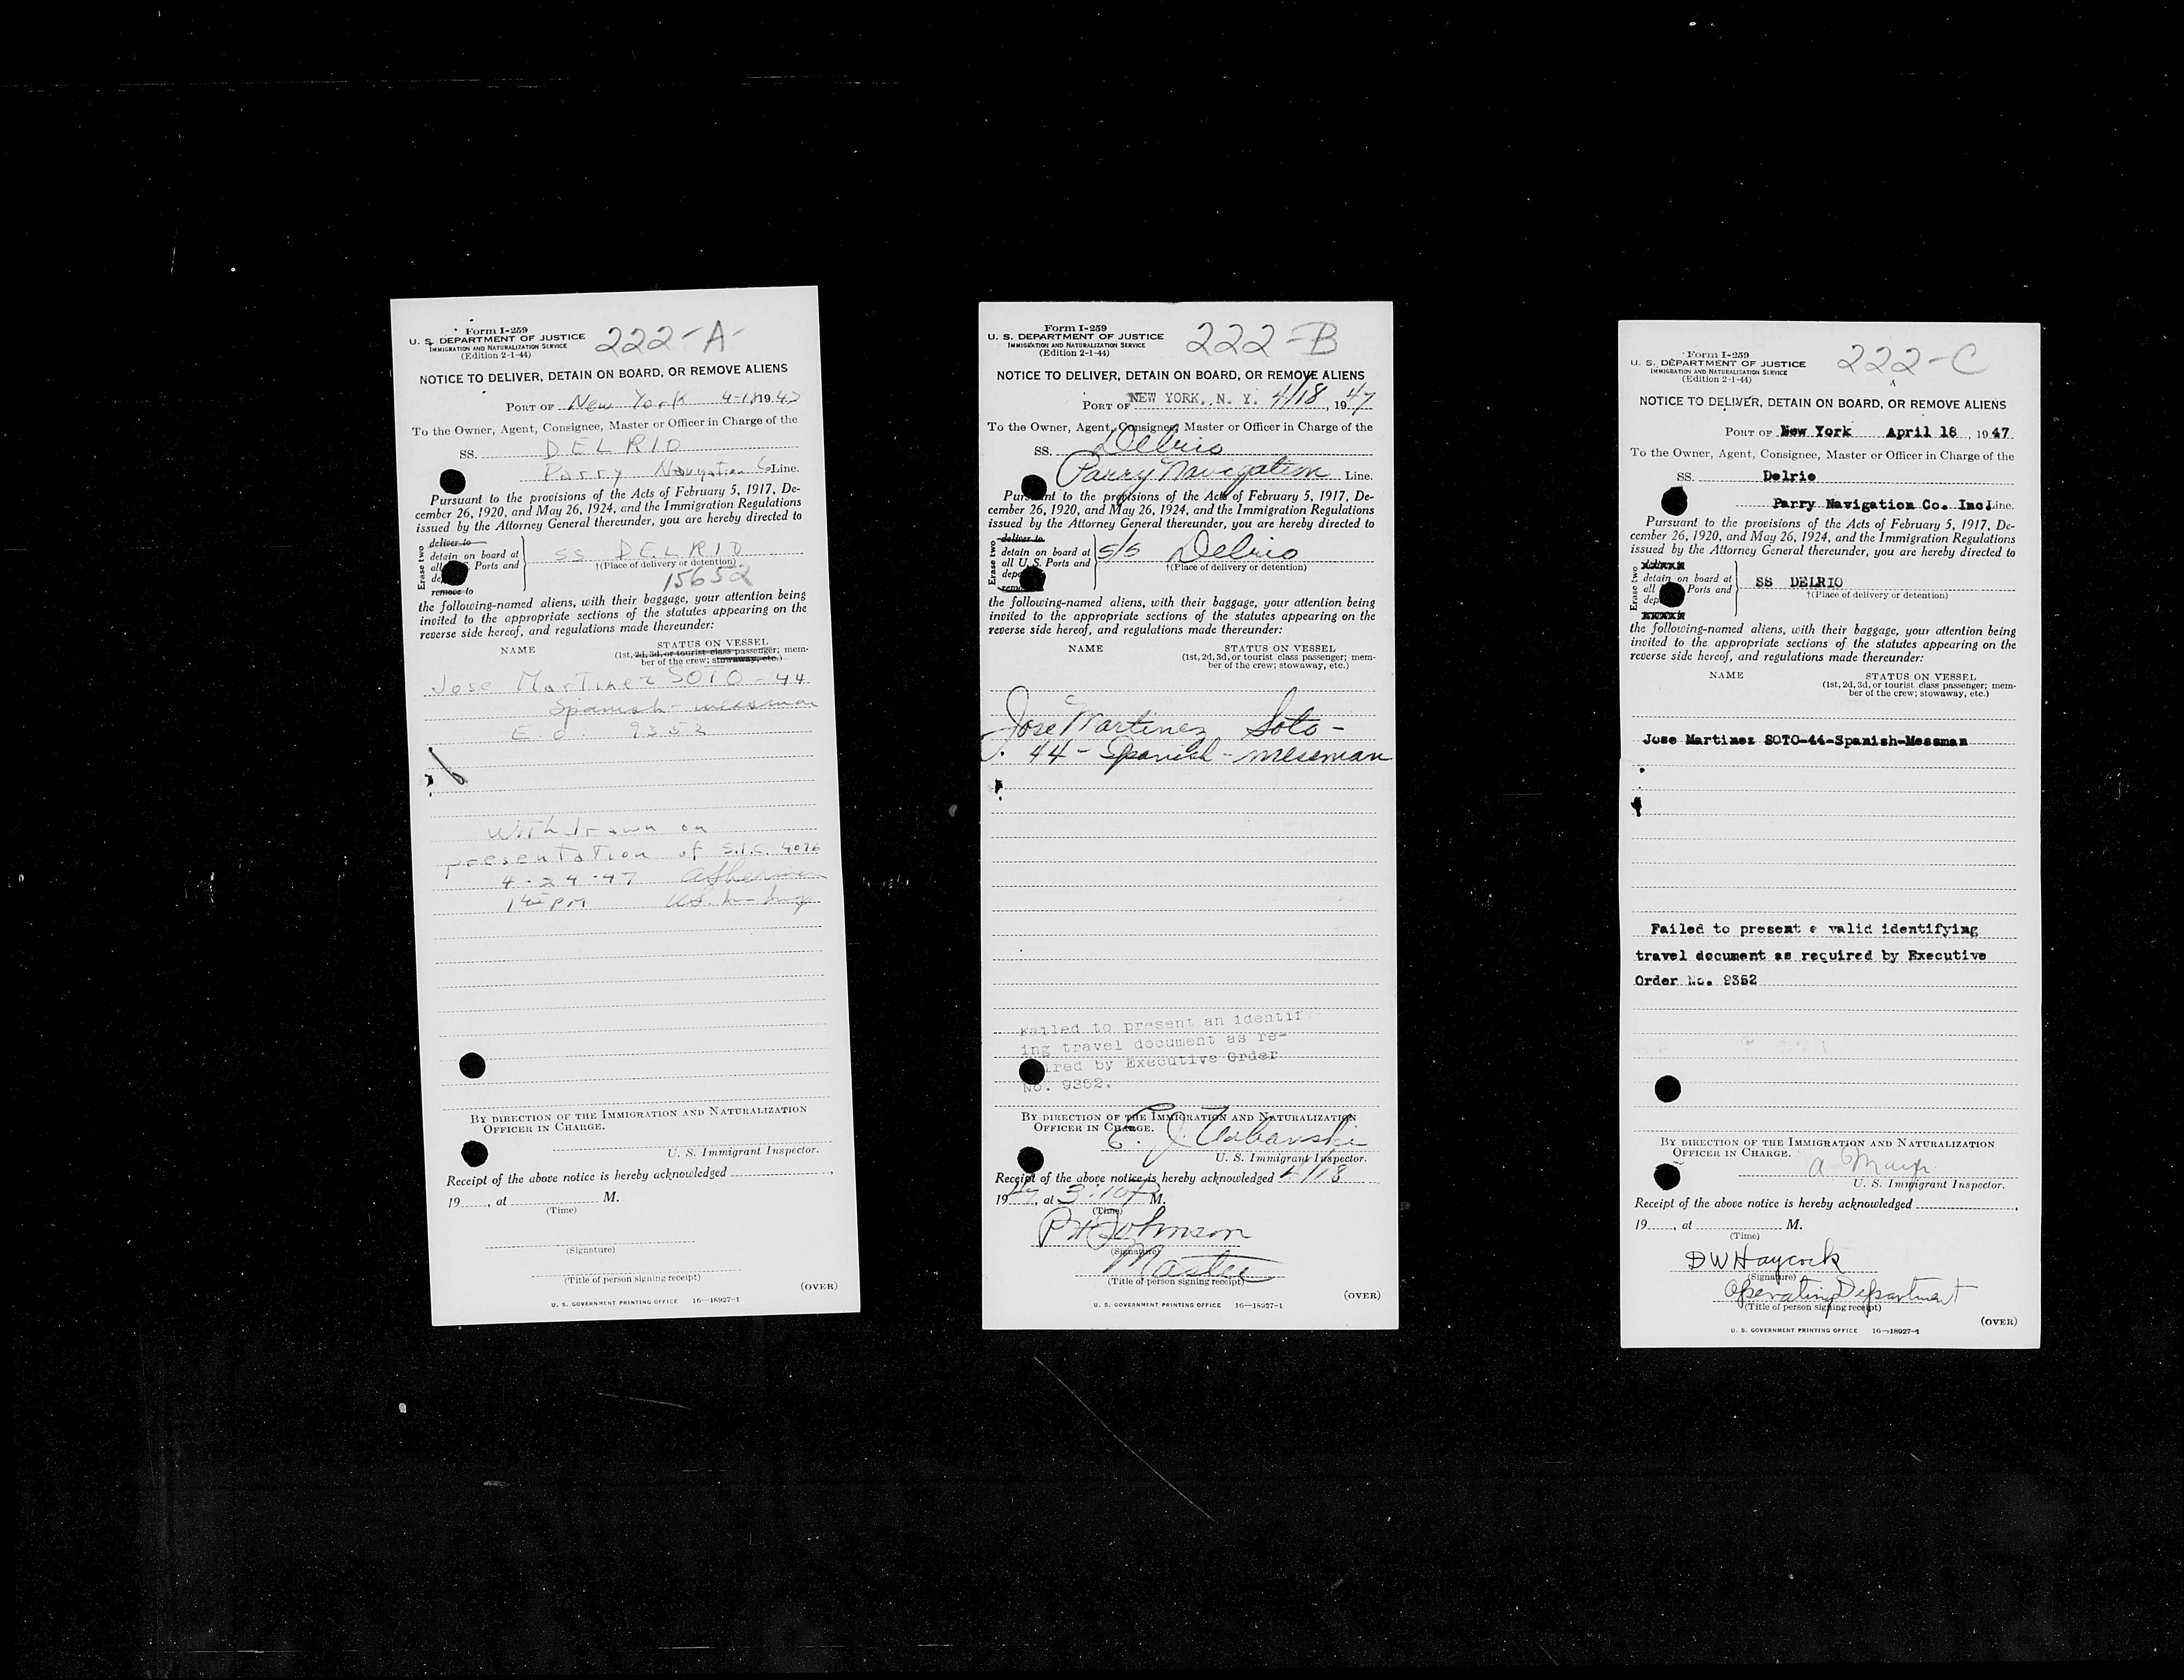 Form I-259
U. S. DEPARTMENT OF JUSTICE
IMMIGRATION AND NATURALIZATION SERVICE
(Edition 2-1-44)
222-A
NOTICE TO DELIVER, DETAIN ON BOARD, OR REMOVE ALIENS
PORT OF New York 4-18 1947
To the Owner, Agent, Consignee, Master or Officer in Charge of the
SS. DELRIO
Parry Navigation Co Line.
Pursuant to the provisions of the Acts of February 5, 1917, De-
cember 26, 1920, and May 26, 1924, and the Immigration Regulations
issued by the Attorney General thereunder, you are hereby directed to
Erase two
deliver to
detain on board at
all U. S. Ports and
remove to
SS DELRIO
†(Place of delivery or detention)
15652
the following-named aliens, with their baggage, your attention being
invited to the appropriate sections of the statutes appearing on the
reverse side hereof, and regulations made thereunder:
NAME STATUS ON VESSEL
(1st, 2d, 3d, or tourist class passenger; mem-
ber of the crew; stowaway, etc.)
Jose Martinez SOTO - 44
Spanish - messman
E. O. 9352
Withdrawn on
presentation of S.I.C. 4096
4-24-47
PM
BY DIRECTION OF THE IMMIGRATION AND NATURALIZATION
OFFICER IN CHARGE.
U. S. Immigrant Inspector.
Receipt of the above notice is hereby acknowledged
19 , at M.
(Time)
(Signature)
(Title of person signing receipt)
(OVER)
U. S. GOVERNMENT PRINTING OFFICE 16—18927-1
Form I-259
U. S. DEPARTMENT OF JUSTICE
IMMIGRATION AND NATURALIZATION SERVICE
(Edition 2-1-44)
222-B
NOTICE TO DELIVER, DETAIN ON BOARD, OR REMOVE ALIENS
PORT OF NEW YORK, N. Y. 4/18, 1947
To the Owner, Agent, Consignee, Master or Officer in Charge of the
SS. Delrio
Parry Navigation Line.
Pursuant to the provisions of the Acts of February 5, 1917, De-
cember 26, 1920, and May 26, 1924, and the Immigration Regulations
issued by the Attorney General thereunder, you are hereby directed to
Erase two
deliver to
detain on board at
all U. S. Ports and
S/S Delrio
†(Place of delivery or detention)
the following-named aliens, with their baggage, your attention being
invited to the appropriate sections of the statutes appearing on the
reverse side hereof, and regulations made thereunder:
NAME STATUS ON VESSEL
(1st, 2d, 3d, or tourist class passenger; mem-
ber of the crew; stowaway, etc.)
Jose Martinez Soto -
44 - Spanish - messman
Failed to present an identif
ing travel document as re-
ired by Executive Order
No. 9352.
BY DIRECTION OF THE IMMIGRATION AND NATURALIZATION
OFFICER IN CHARGE.
E. J. Urbanski
U. S. Immigrant Inspector.
Receipt of the above notice is hereby acknowledged 4/18
1947, at 3:10 P M.
(Time)
P H Johnson
(Signature)
Master
(Title of person signing receipt)
(OVER)
U. S. GOVERNMENT PRINTING OFFICE 16—18927-1
Form I-259
U. S. DEPARTMENT OF JUSTICE
IMMIGRATION AND NATURALIZATION SERVICE
(Edition 2-1-44)
222-C
NOTICE TO DELIVER, DETAIN ON BOARD, OR REMOVE ALIENS
PORT OF New York April 18, 1947
To the Owner, Agent, Consignee, Master or Officer in Charge of the
SS. Delrio
Parry Navigation Co. Inc. Line.
Pursuant to the provisions of the Acts of February 5, 1917, De-
cember 26, 1920, and May 26, 1924, and the Immigration Regulations
issued by the Attorney General thereunder, you are hereby directed to
Erase two
detain on board at
all Ports and
SS DELRIO
†(Place of delivery or detention)
the following-named aliens, with their baggage, your attention being
invited to the appropriate sections of the statutes appearing on the
reverse side hereof, and regulations made thereunder:
NAME STATUS ON VESSEL
(1st, 2d, 3d, or tourist class passenger; mem-
ber of the crew; stowaway, etc.)
Jose Martinez SOTO-44-Spanish-Messman
Failed to present a valid identifying
travel document as required by Executive
Order No. 9352
BY DIRECTION OF THE IMMIGRATION AND NATURALIZATION
OFFICER IN CHARGE.
U. S. Immigrant Inspector.
Receipt of the above notice is hereby acknowledged
19 , at M.
(Time)
DW Haycock
(Signature)
Operating Department
(Title of person signing receipt)
(OVER)
U. S. GOVERNMENT PRINTING OFFICE 16—18927-1